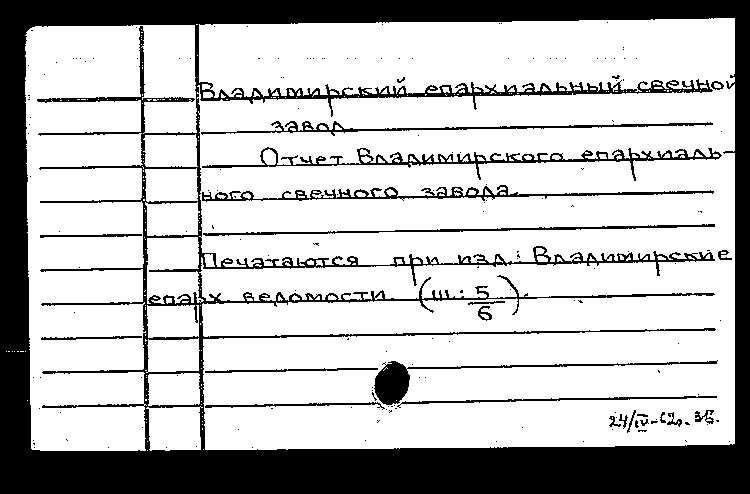 Владимирский епархиальный свечной
завод.
Отчет Владимирского епархиаль-
ного свечного завода.
Печатаются при изд.: Владимирские
епарх. ведомости. (Ш: 5/6).
24/IV-62г.